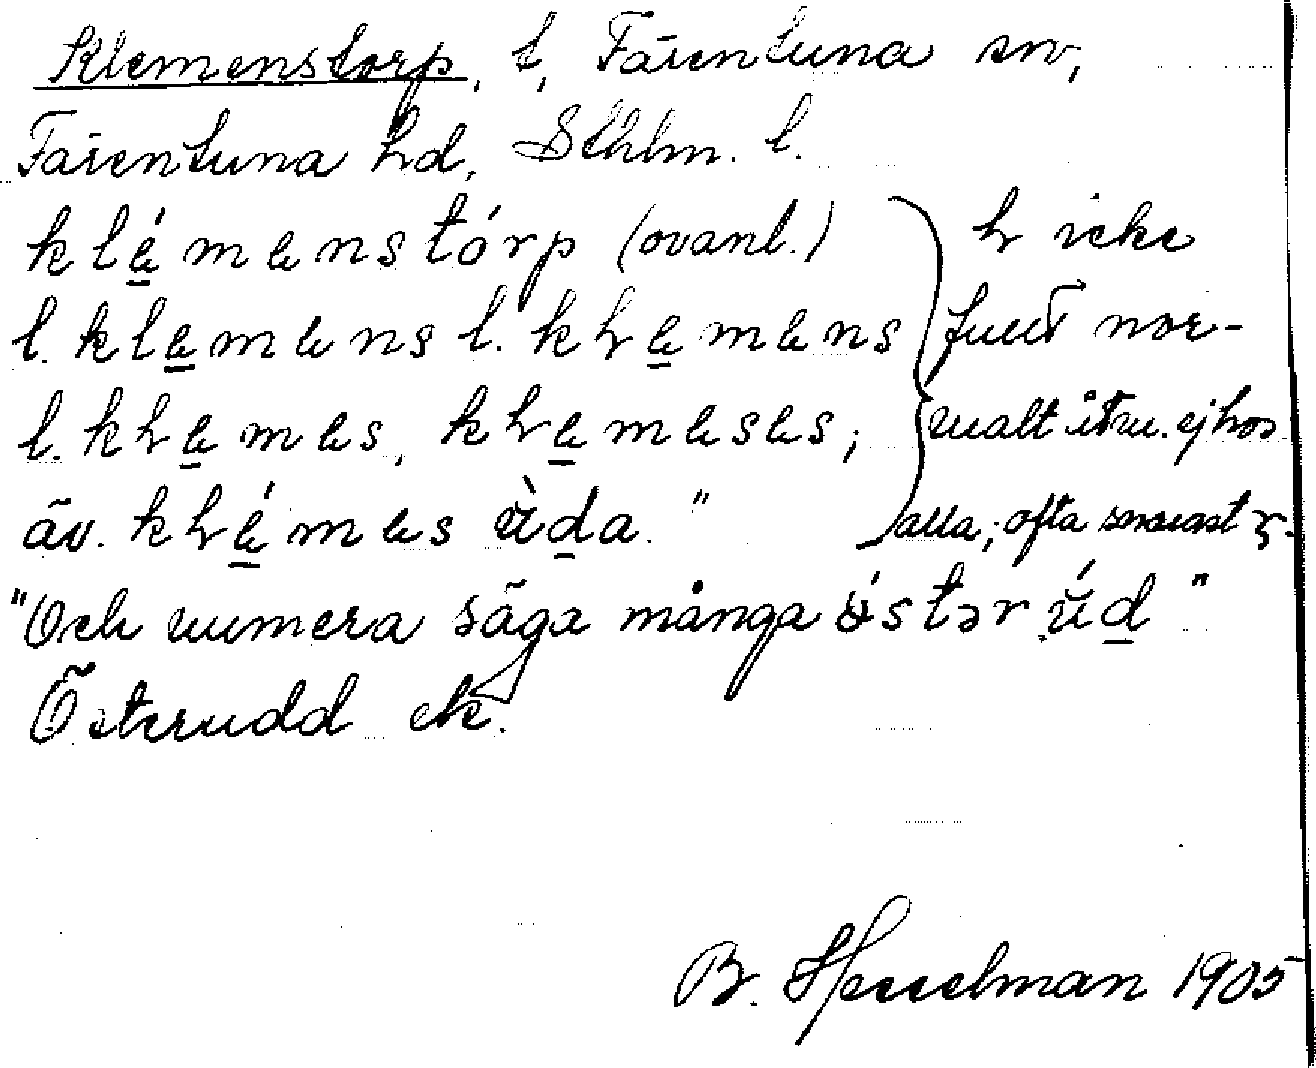 Klemenstorp, t, Färentuna sn,
Färentuna hd, Sthlm. l.
klémenstórp (ovanl.)
l. klemens l. khemens
l. khemes, khemeses;
äv. khémes ùda."
h icke
fullt nor-
malt åtm. ej hos
alla; ofta snarast
"Och numera säga många östər úd"
Österudd ek.
B. Hesselman 1905